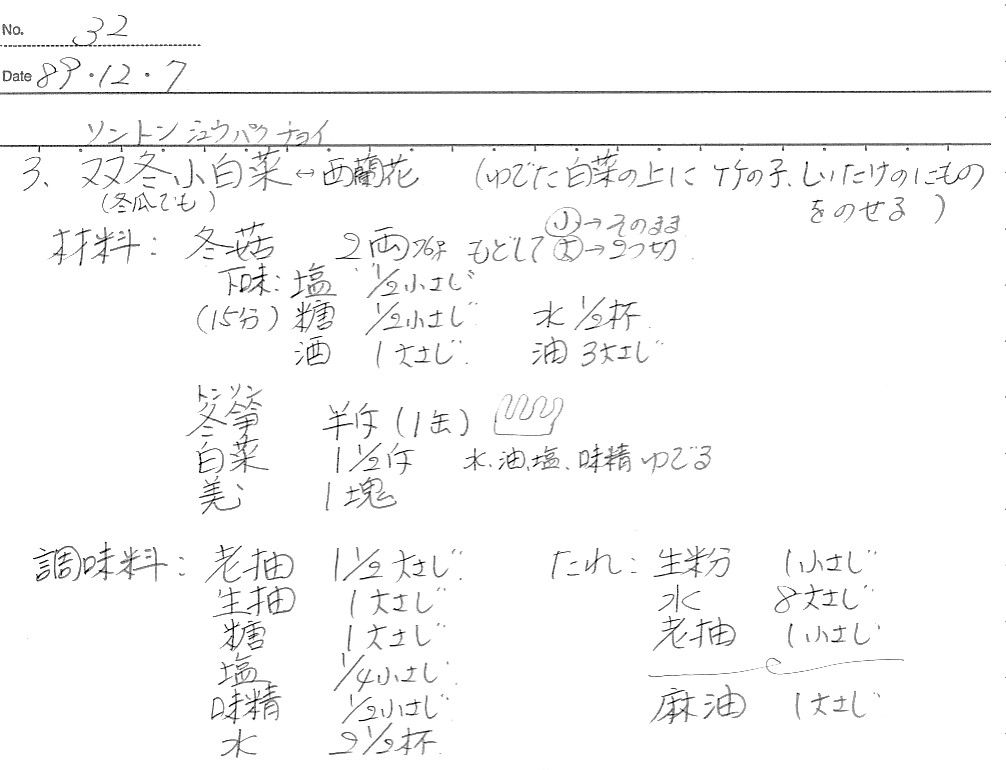 No. 32
Date 89・12・7
ソントン シュウパクチョイ
3、双冬小白菜↔西蘭花 (ゆでた白菜の上に 竹の子、しいたけのにもの
(冬瓜でも) をのせる )
小→そのまま
材料: 冬菇 2両 もどして 大→2つ切
下味: 塩 1/2小さじ
(15分) 糖 1/2小さじ 水 1/2杯
酒 1大さじ 油 3大さじ
トン ソン
冬筍 半斤 (1缶)
白菜 1 1/2斤 水、油、塩、味精 ゆでる
1塊
調味料: 老抽 1 1/2大さじ たれ: 生粉 1小さじ
生抽 1大さじ 水 8大さじ
糖 1大さじ 老抽 1小さじ
塩 1/4小さじ
味精 1/2小さじ 麻油 1大さじ
水 2 1/2杯